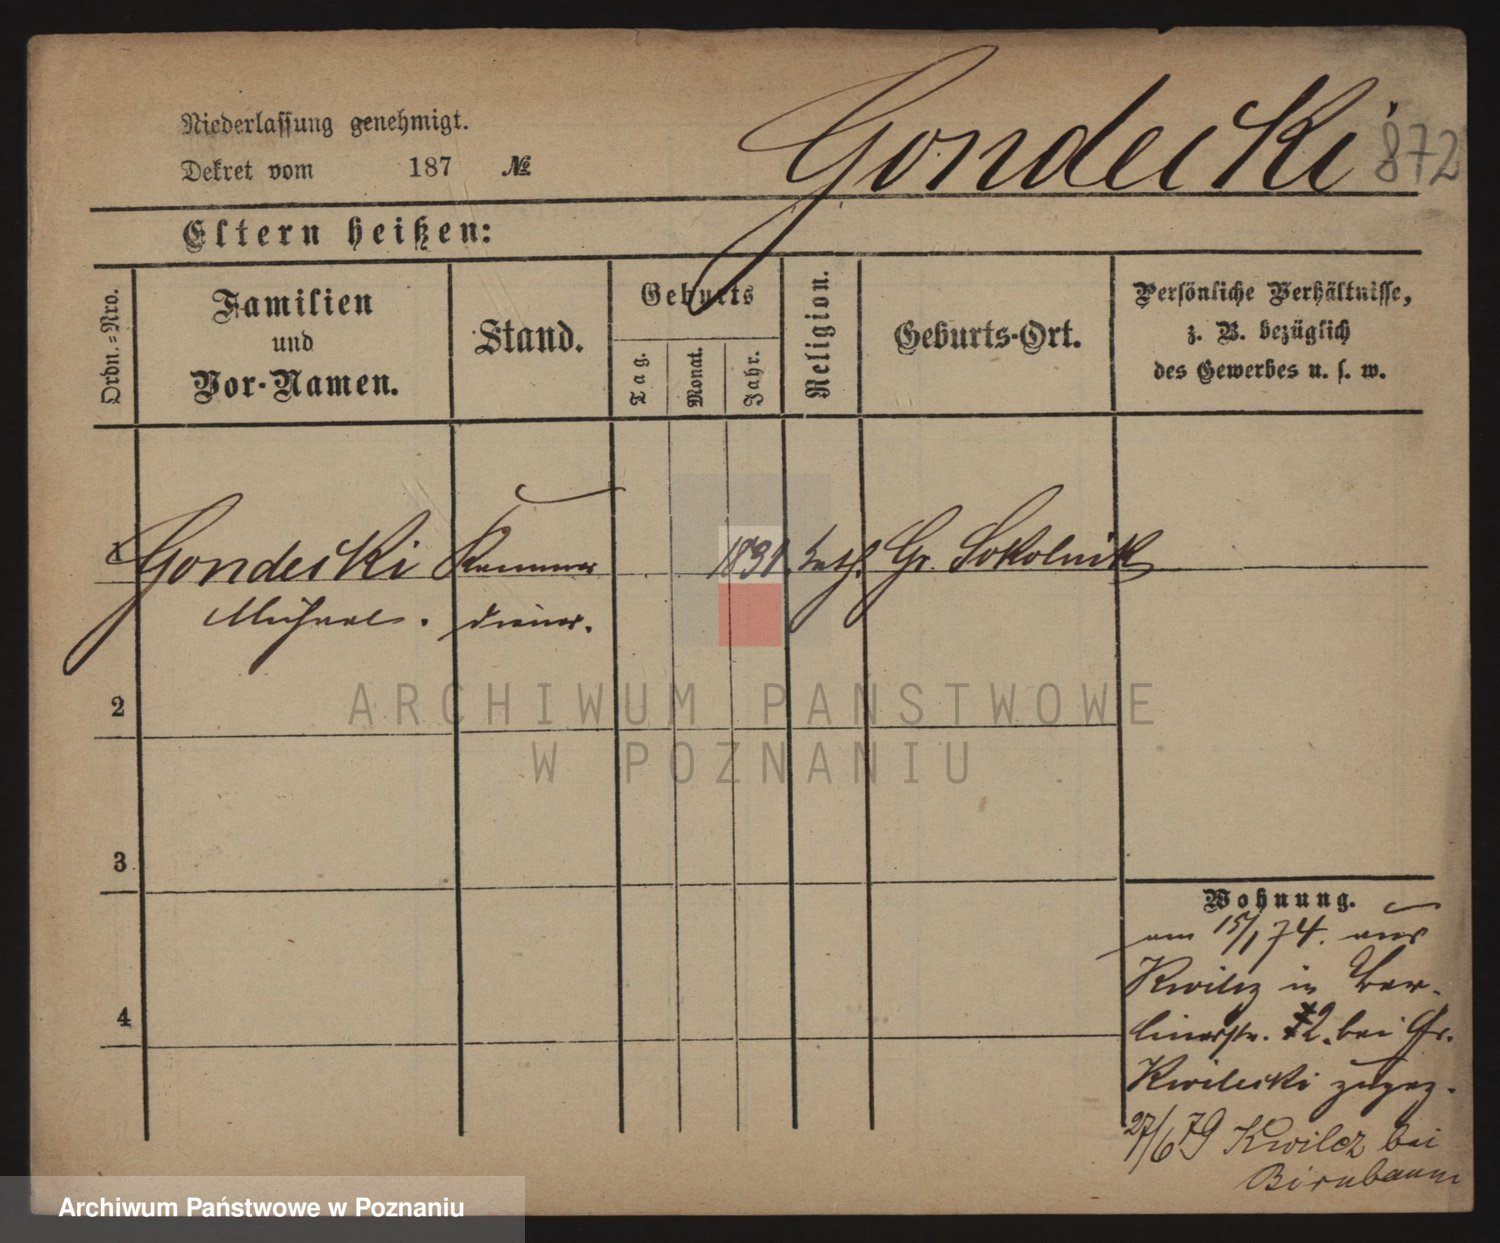 Gondecki
872
Niederlassung genehmigt.
Dekret vom 187 №
Eltern heißen:
Ordn.=Nro.
Familien
und
Vor-Namen.
Stand.
Geburts
Tag.
Monat.
Jahr.
Religion.
Geburts-Ort.
Persönliche Verhältnisse,
z. B. bezüglich
des Gewerbes u. s. w.
1 Gondecki Kammer 1831. kath. Gr. Sokolnik
Michael. diener.
2
3
4
Wohnung.
am 15/1 74. aus
Kwilcz in Ber-
linerstr. 2. bei Gr.
Kwilecki zugez.
27/6 79 Kwilcz bei
Birnbaum
ARCHIWUM PAŃSTWOWE
W POZNANIU
Archiwum Państwowe w Poznaniu